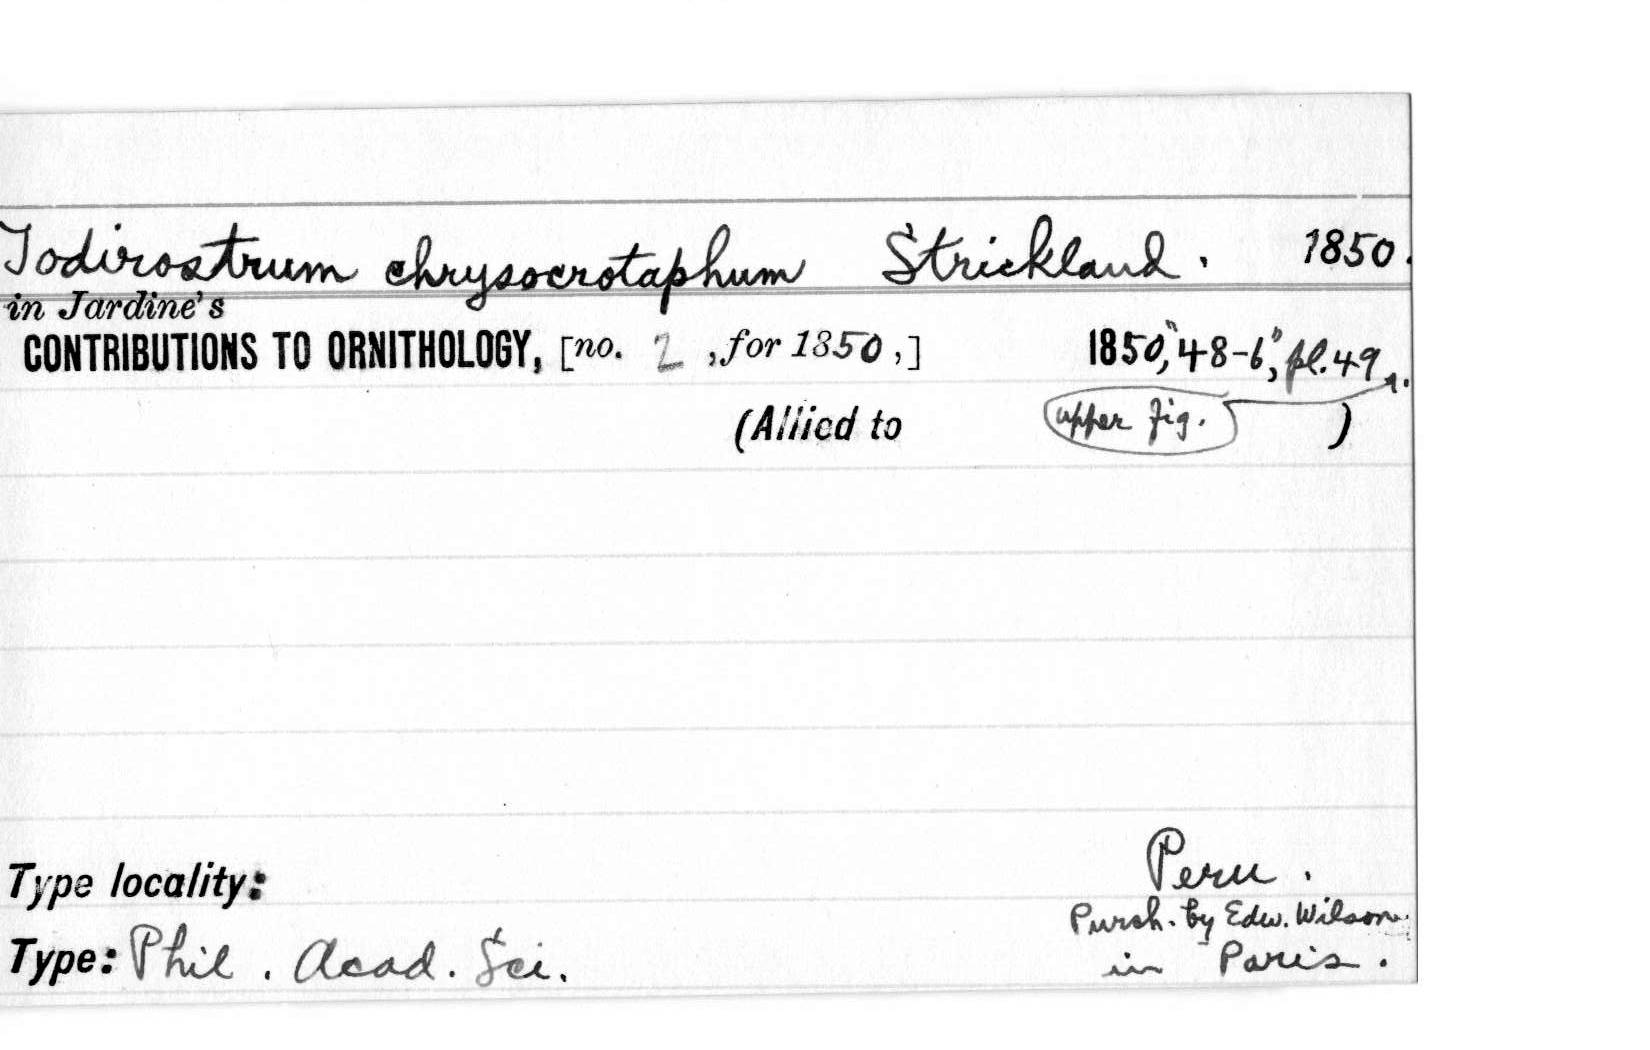 Todirostrum chrysocrotaphum Strickland. 1850.
in Jardine's
CONTRIBUTIONS TO ORNITHOLOGY, [no. 2, for 1850,] 1850, "48-6", pl. 49.
(Allied to upper fig. )
Type locality: Peru.
Purch. by Edw. Wilson
Type: Phil. Acad. Sci. in Paris.